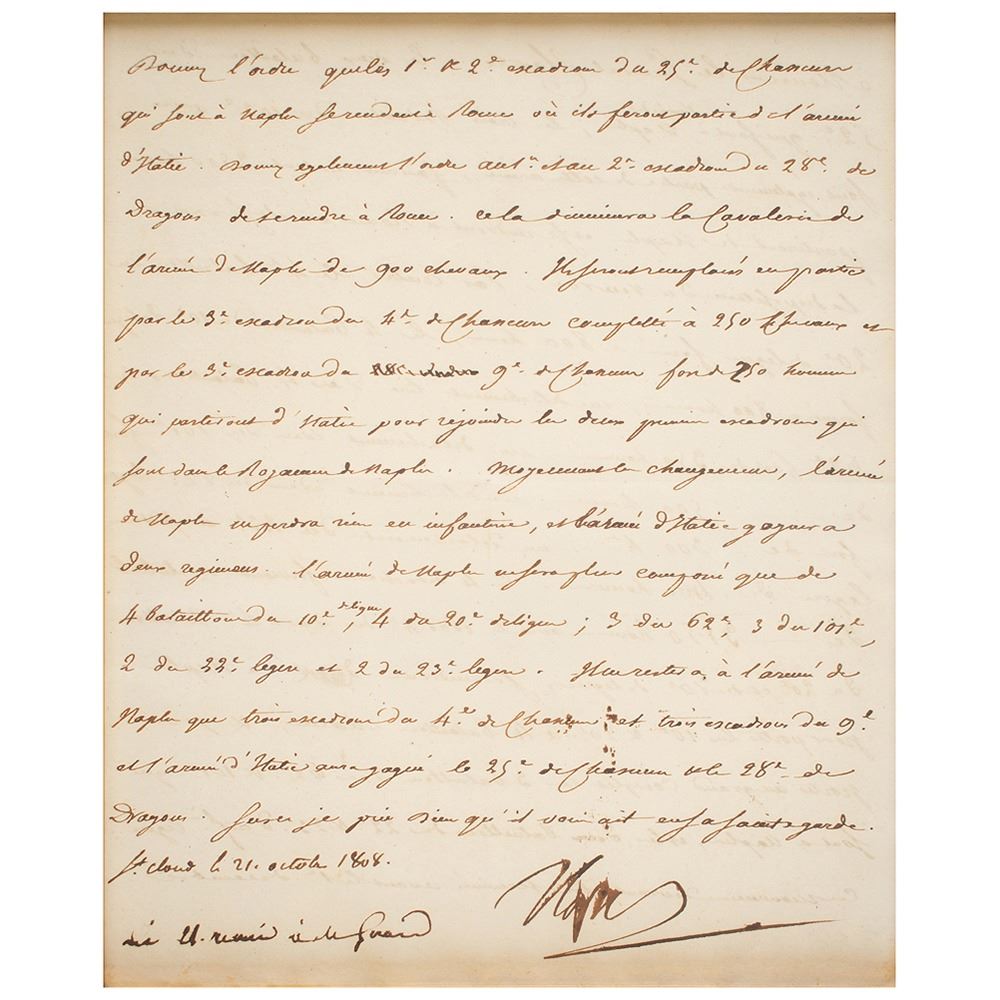 Donnez l'ordre que les 1er & 2e escadrons du 25e de Chasseurs
qui sont à Naples se rendent à Rome où ils feront partie de l'armée
d'Italie. Donnez egalement l'ordre au 1er et au 2e escadron du 28e de
Dragons de se rendre à Rome. Cela diminuera la Cavalerie de
l'armée de Naples de 900 chevaux. Ils seront remplacés en partie
par le 3e escadron du 4e de Chasseurs completté à 250 chevaux et
par le 3e escadron du 9e de Chasseurs fort de 250 hommes
qui partiront d'Italie pour rejoindre les deux premiers escadrons qui
sont dans le Royaume de Naples. Moyennant ces changemens, l'armée
de Naples ne perdra rien en infanterie, et l'armée d'Italie gagnera
deux regimens. L'armée de Naples ne sera plus composée que de
4 bataillons du 10e de ligne, 4 du 20e de ligne; 3 du 62e, 3 du 101e,
2 du 22e legere et 2 du 23e legere. Il ne restera à l'armée de
Naples que trois escadrons du 4e de Chasseurs et trois escadrons du 9e
et l'armée d'Italie aura gagné le 25e de Chasseurs & le 28e de
Dragons. Sur ce je prie Dieu qu'il vous ait en sa sainte garde.
St Cloud le 21. octobre 1808.
Nap